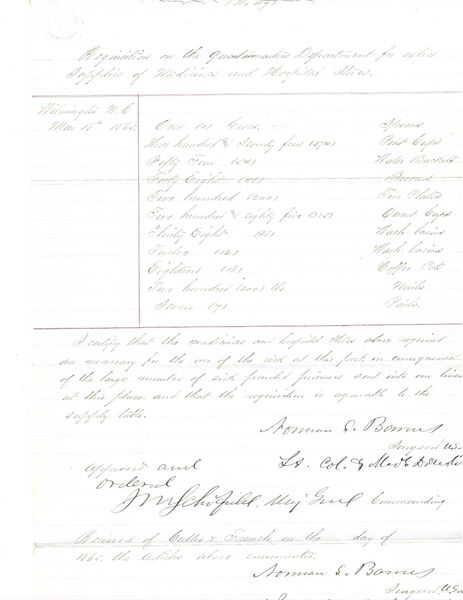 Requisition on the Quartermaster Department for extra
Supplies of Medicines and Hospital Stores.
Wilmington N.C.
Mar 15th 1865.
One (1) Gross Spoons
Two hundred & Seventy five Pint Cups
Fifty Four (54) Water Buckets
Forty Eight (48) Brooms
Two hundred (200) Tin Plates
Two hundred & eighty five (285) Quart Cups
Thirty Eight (38) Wash basins
Twelve (12) Wash basins
Eighteen (18) Coffee Pots
Two hundred (200) lbs Nails
Seven (7) Pails
I certify that the medicines and hospital stores above required
are necessary for the use of the sick at this post in consequence
of the large number of sick paroled prisoners sent into our lines
at this place, and that the requisition is agreeable to the
supply table.
Norman S. Barnes
Surgeon U.S.
Lt. Col. & Med
Approved and
ordered
J M Schofield, Maj Genl Commanding
Received of Cutler & French, on the day of
1865, the articles above enumerated.
Norman S. Barnes
Surgeon, U.S.